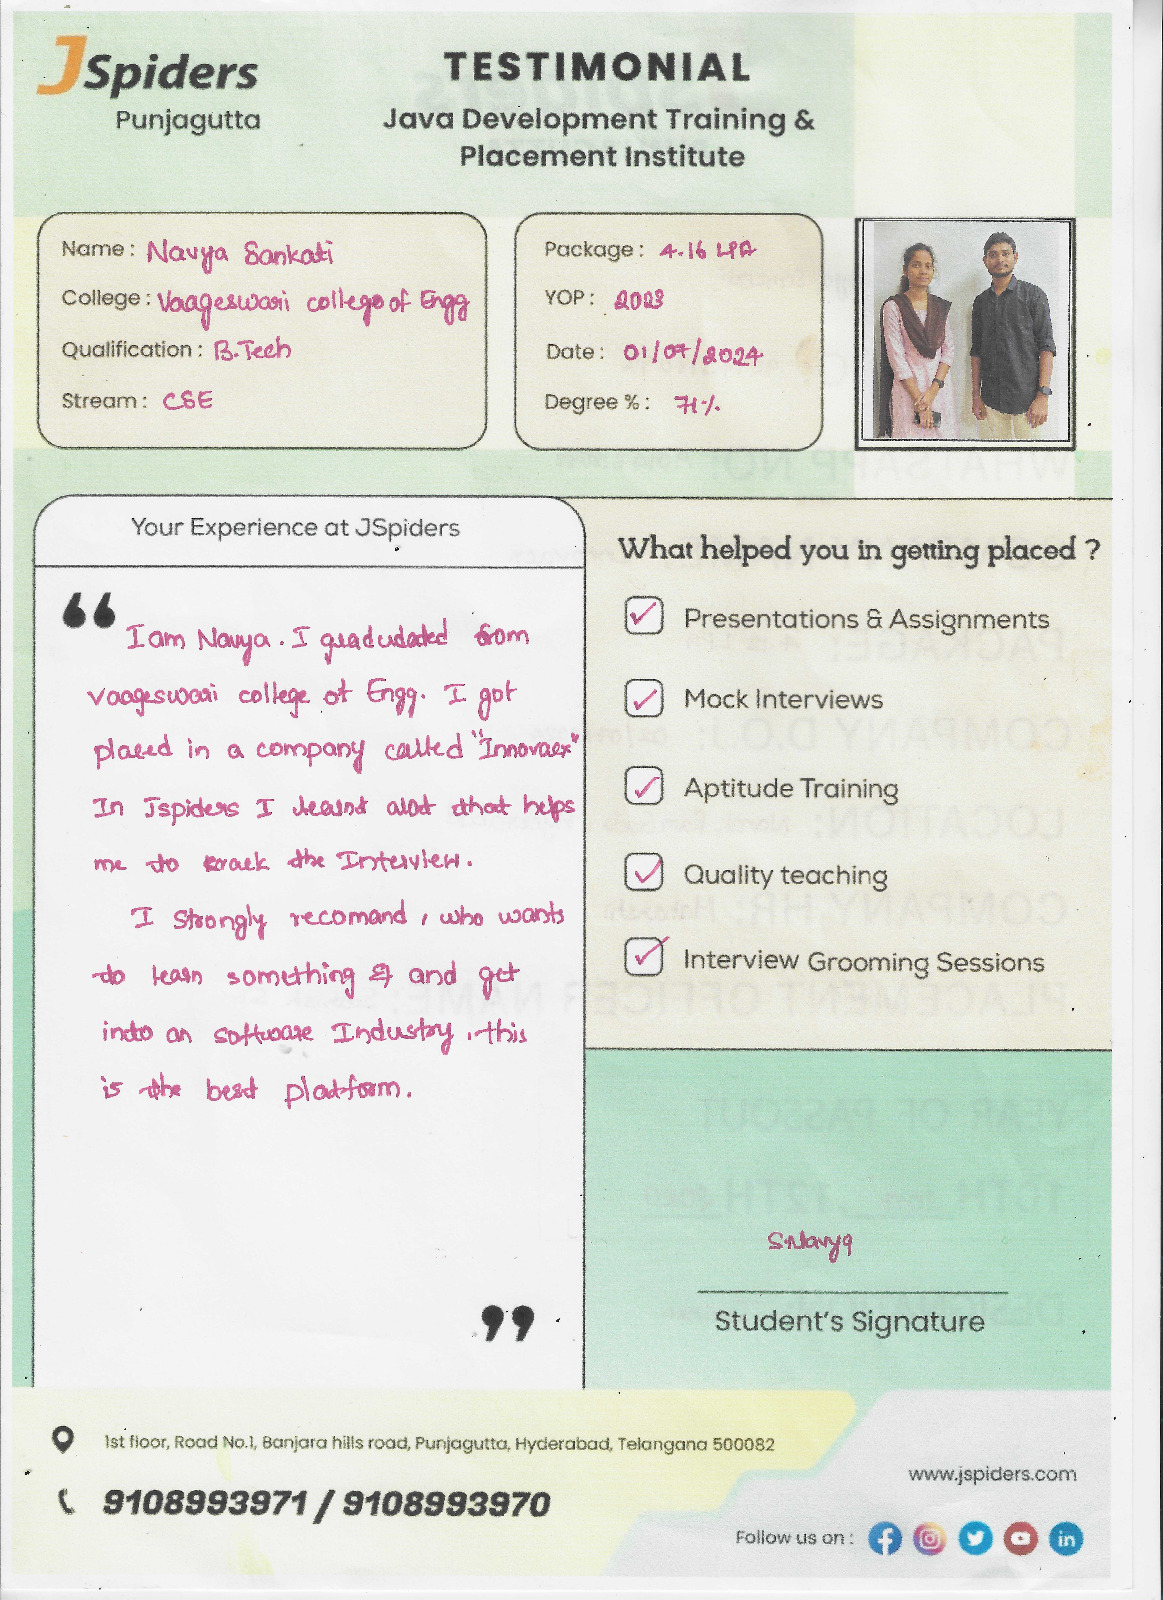 JSpiders
Punjagutta
TESTIMONIAL
Java Development Training &
Placement Institute
Name : Navya Sankati
College : Vaageswari college of Engg
Qualification : B.Tech
Stream : CSE
Package : 4.16 LPA
YOP : 2023
Date : 01/07/2024
Degree % : 71%
Your Experience at JSpiders
“ I am Navya. I gradudated from
Vaageswari college of Engg. I got
placed in a company called "Innovaex"
In Jspiders I learnt alot that helps
me to crack the Interview.
I Strongly recomand, who wants
to learn something and get
into an software Industry, this
is the best platform.
”
What helped you in getting placed ?
✓ Presentations & Assignments
✓ Mock Interviews
✓ Aptitude Training
✓ Quality teaching
✓ Interview Grooming Sessions
S.Navya
Student's Signature
1st floor, Road No.1, Banjara hills road, Punjagutta, Hyderabad, Telangana 500082
9108993971 / 9108993970
www.jspiders.com
Follow us on :